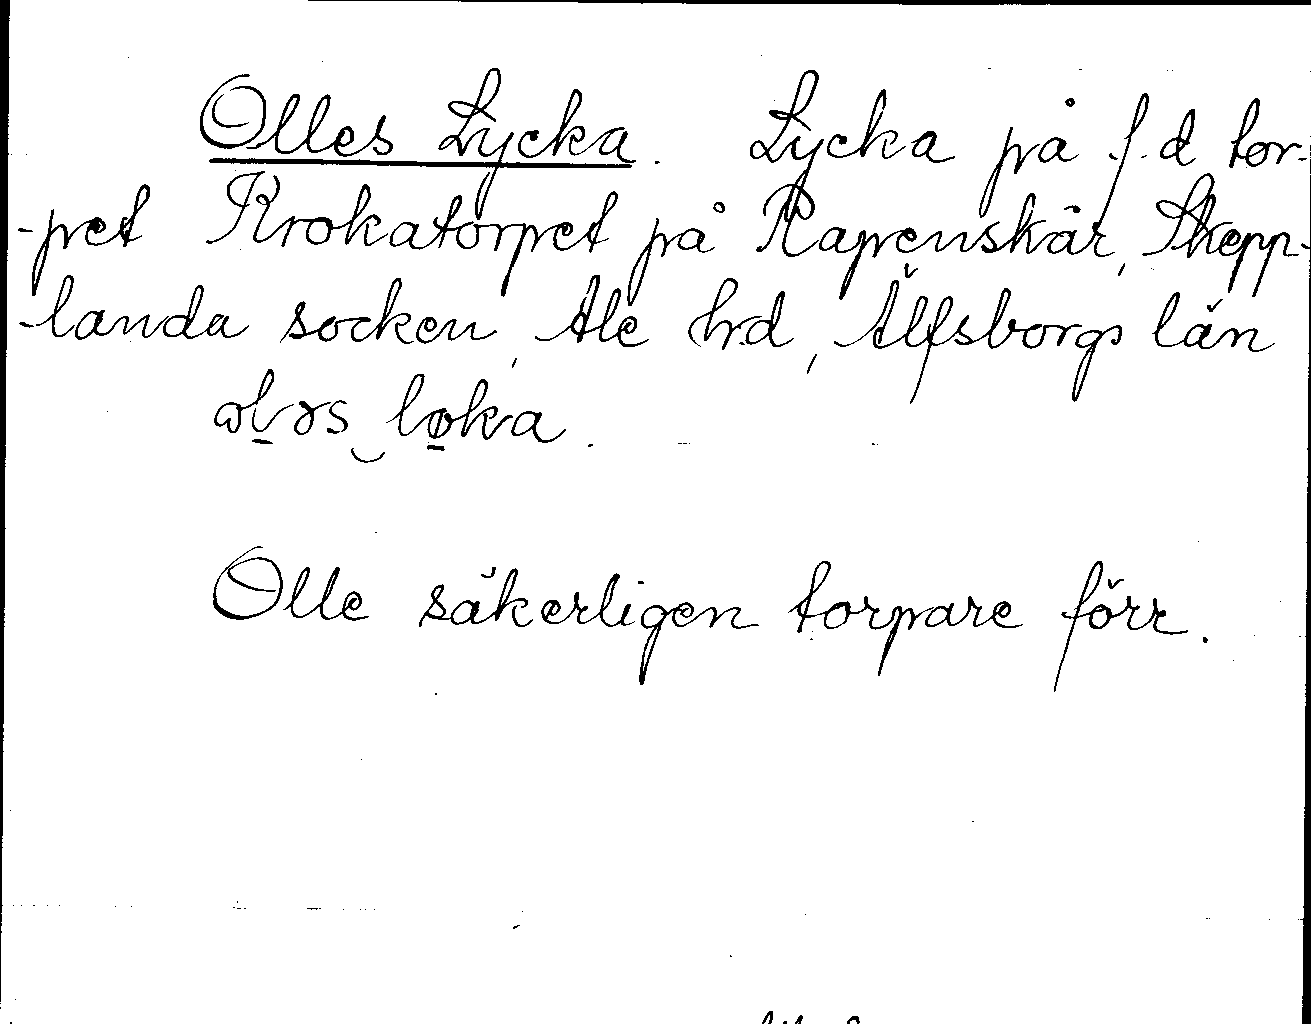 Olles Lycka. Lycka på f.d tor-
-pet Krokatorpet på Rapenskär, Skepp-
-landa socken, Ale hd, Älfsborgs län
ɷl̠ɤs‿lø̠ka.
Olle säkerligen torpare förr.